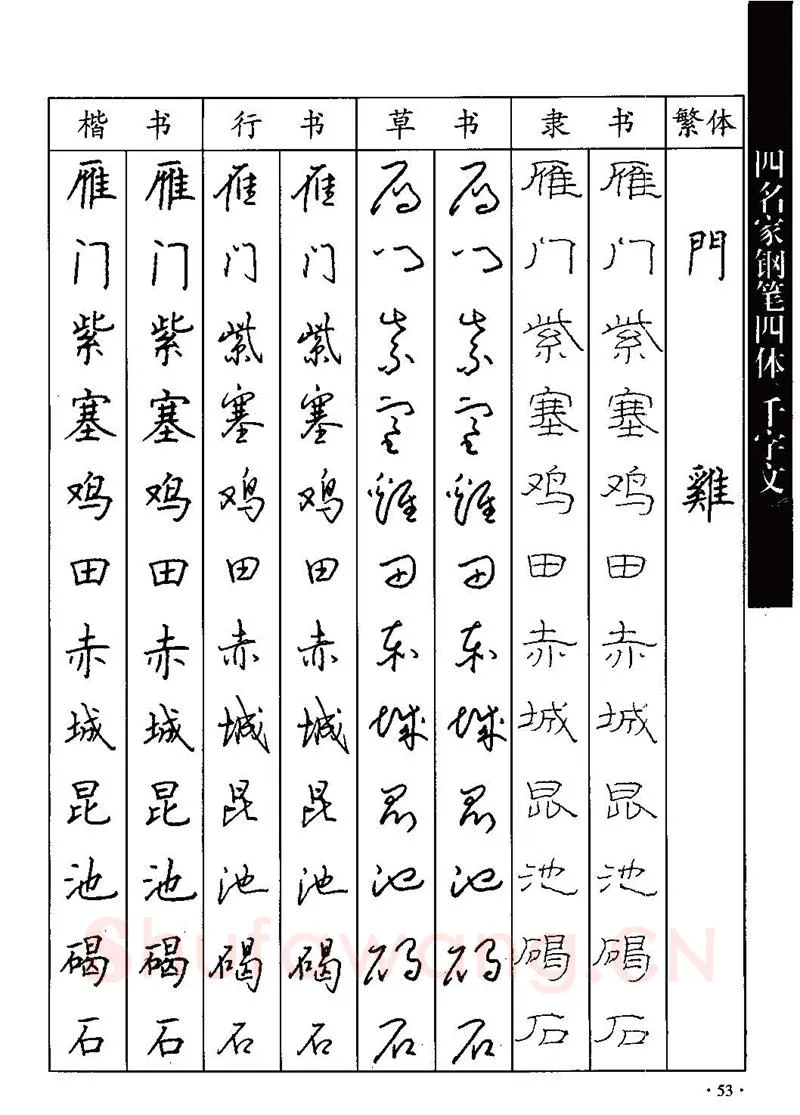 楷书 行书 草书 隶书 繁体
雁 雁 雁 雁 雁 雁 雁 雁
门 门 门 门 门 门 门 门 門
紫 紫 紫 紫 紫 紫 紫 紫
塞 塞 塞 塞 塞 塞 塞 塞
鸡 鸡 鸡 鸡 雞 雞 鸡 鸡 雞
田 田 田 田 田 田 田 田
赤 赤 赤 赤 赤 赤 赤 赤
城 城 城 城 城 城 城 城
昆 昆 昆 昆 昆 昆 昆 昆
池 池 池 池 池 池 池 池
碣 碣 碣 碣 碣 碣 碣 碣
石 石 石 石 石 石 石 石
四名家钢笔四体千字文
Shufawang.CN
·53·